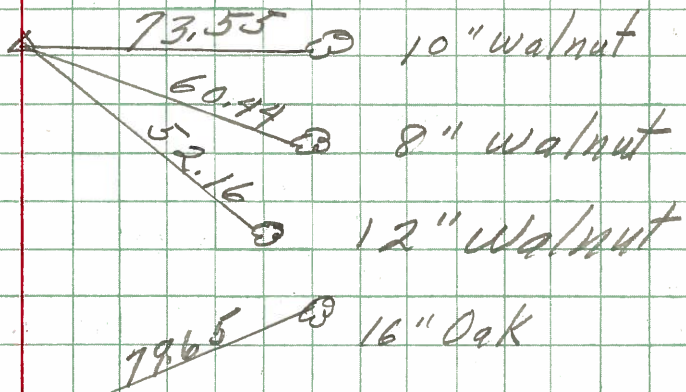 73.55 10" walnut
60.44 8" walnut
52.16 12" Walnut
79.65 16" Oak